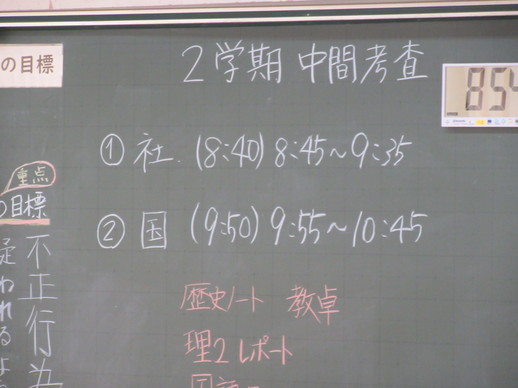 の目標
2学期 中間考査
854
① 社. (8:40) 8:45~9:35
② 国 (9:50) 9:55~10:45
重点
の目標
不正行為
疑われるよ
歴史ノート 教卓
理2レポート